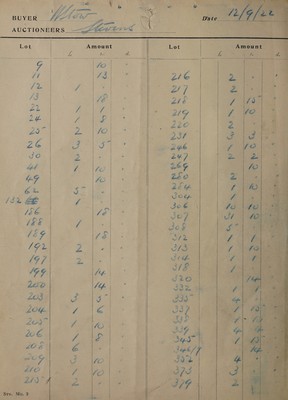 BUYER W Stow Date 12/9/22
AUCTIONEERS Stevens
Lot Amount Lot Amount
£ £
9 10 -
11 13 -
12 1 - -
13 18 -
22 1 1 -
24 1 8 -
25 2 10 -
26 3 5 -
30 2 - -
41 1 10 -
49 10 -
62 5 - -
182 1
186 18 -
188 1
189 18 -
192 2 -
197 2 -
199 14
200 14
203 3 5
204 1 6
205 1 10
206 1 8
208 6 -
209 3 10
210 1 10
215 2 -
216 2 -
217 2 -
218 1 15
219 1 10
220 2 -
231 3 3
246 1 10
247 2 2
269 10
280 2 -
284 1 10
304 1 -
306 10 10
307 31 10
308 5 -
312 1 1
313 1 10
314 1 1
318 1
320 14
332 1 1
335 4 -
337 1 15
339 4 4
345 1 15
346/7 14
352 4 -
373 3
379 2 -
Rev. No. 3